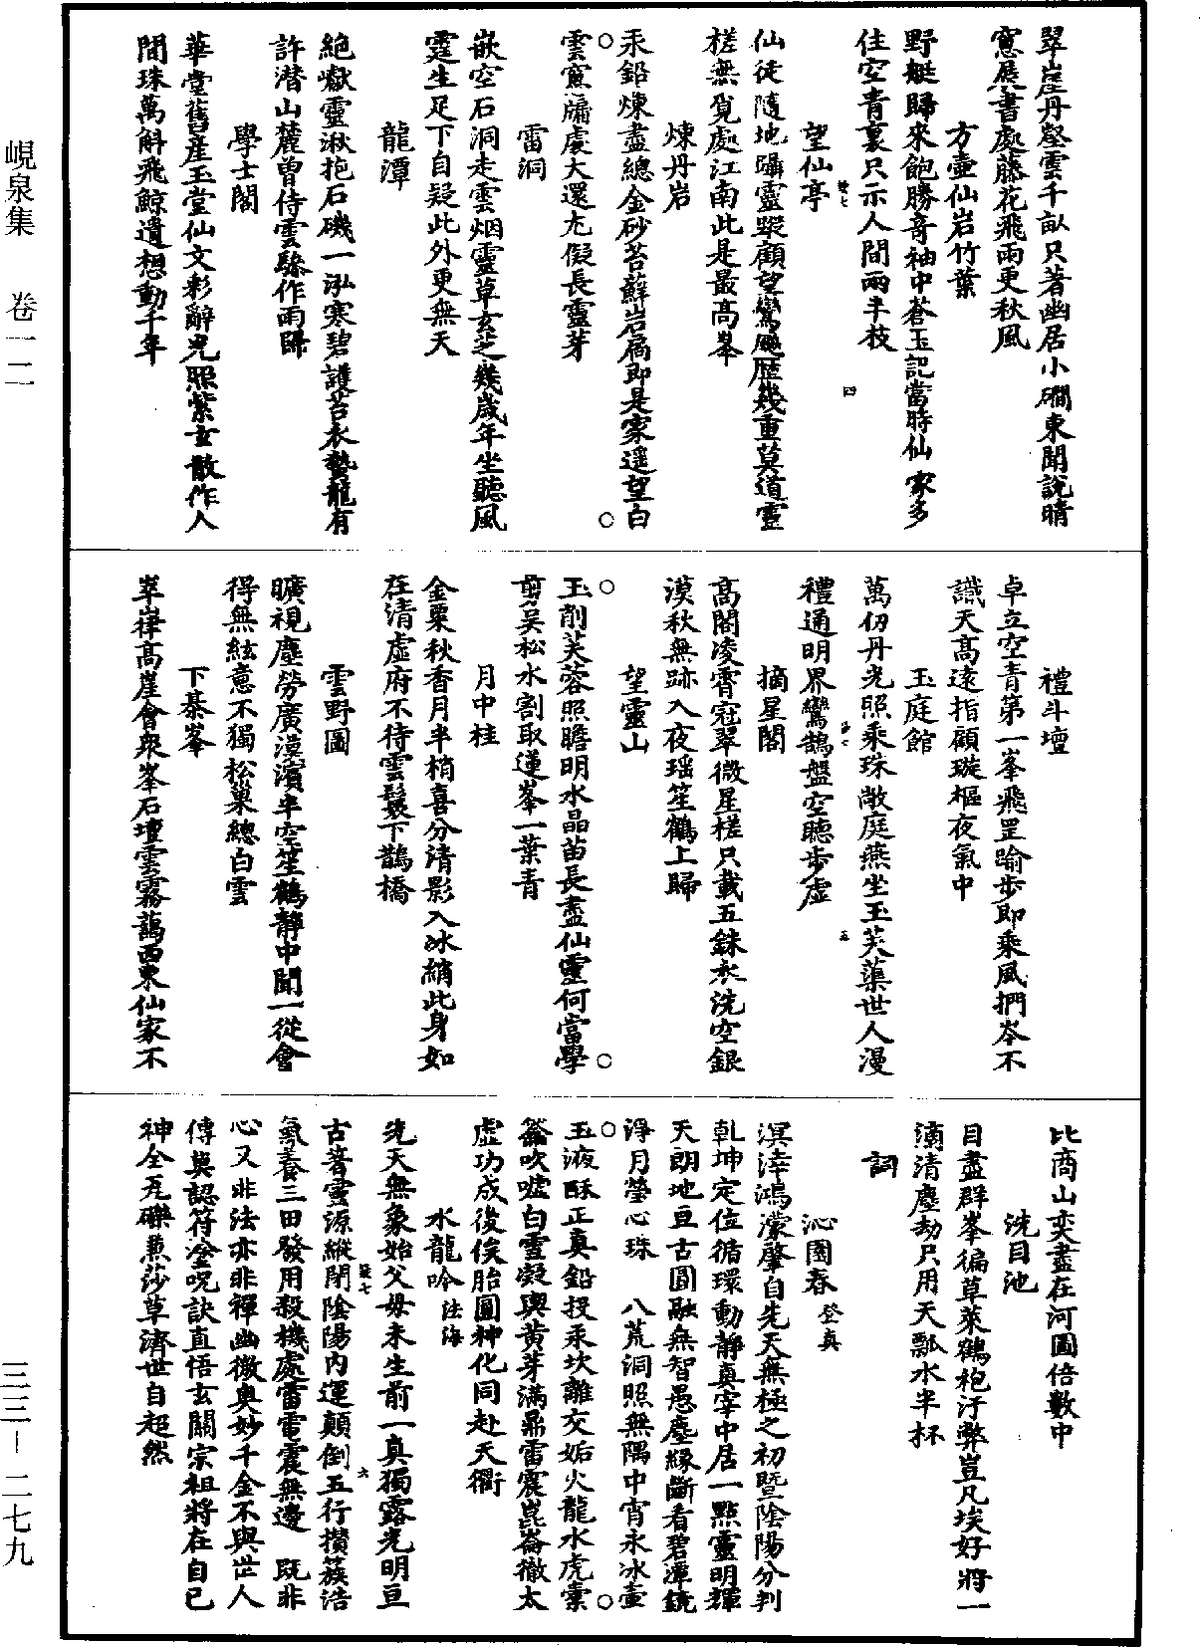 峴泉集　卷一二
三三－二七九
翠崖丹壑雲千畝只著幽居小磵東聞說晴
窻展書處藤花飛雨更秋風
方壺仙岩竹葉
野艇歸來飽勝奇袖中蒼玉記當時仙家多
住空青裏只示人間兩半枝
四
望仙亭
仙徒隨地躡靈蹤顧望鸞飈歷幾重莫道靈
槎無覓處江南此是最高峯
煉丹岩
汞鉛煉盡總金砂苔蘚岩扃即是家遥望白
雲窻牖處大還尤假長靈芽
雷洞
嵌空石洞走雲烟靈草玄芝幾歲年坐聽風
霆生足下自疑此外更無天
龍潭
絶巘靈湫抱石磯一泓寒碧護苔衣蟄龍有
許潛山麓曾侍雲驂作雨歸
學士閣
華堂舊産玉堂仙文彩辭光照紫玄散作人
間珠萬斛飛鯨遺想動千年
禮斗壇
卓立空青第一峯飛罡踰步即乘風捫岑不
識天髙遠指顧璇樞夜氣中
玉庭館
萬仞丹光照乘珠敞庭燕坐玉芙蕖世人漫
禮通明界鸞鵠盤空聽步虛
五
摘星閣
髙閣凌霄冠翠微星槎只載五銖衣洗空銀
漠秋無跡入夜瑶笙鶴上歸
望靈山
玉削芙蓉照瞻明水晶苗長盡仙靈何當學
剪吴松水割取蓮峯一葉青
月中桂
金粟秋香月半梢喜分清影入冰綃此身如
在清虛府不待雲鬟下鵲橋
雲野圖
曠視塵勞廣漠濱半空笙鶴靜中聞一從會
得無絃意不獨松巢總白雲
下棊峯
崒嵂髙崖會衆峯石壇雲霧藹西東仙家不
比商山奕盡在河圖倍數中
洗目池
目盡群峯徧草萊鶴袍汙弊豈凡埃好將一
滴清塵劫只用天瓢水半杯
詞
沁園春 登真
溟涬鴻濛肇自先天無極之初暨陰陽分判
乾坤定位循環動靜真宰中居一點靈明輝
天朗地亘古圓融無智愚塵緣斷看碧潭鏡
淨月瑩心珠　八荒洞照無隅中宵永冰壺
玉液酥正真鉛投汞坎離交姤火龍水虎橐
籥吹噓白雪凝輿黄芽滿鼎雷震崑崙徹太
虛功成後俟胎圓神化同赴天衢
水龍吟 法海
先天無象始父母未生前一真獨露光明亘
六
古菩靈源縱閉陰陽内運顛倒五行攅蔟浩
氣養三田發用殺機處雷電震無邊　既非
心又非法亦非禪幽微奥妙千金不與世人
傳莫認符塗呪訣直悟玄關宗祖將在自已
神全瓦礫蒸莎草濟世自超然